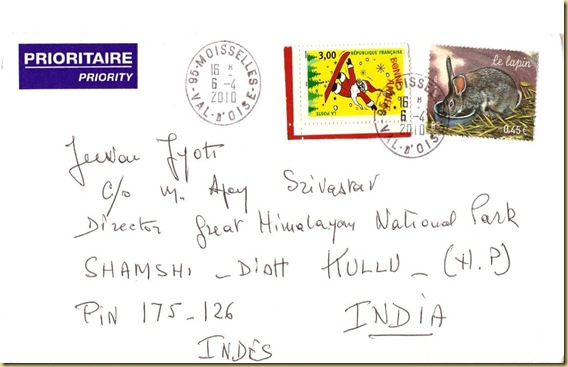 PRIORITAIRE
PRIORITY
95-MOISSELLES
16 H
6-4
2010
VAL-D'OISE
3,00 RÉPUBLIQUE FRANÇAISE
BONNE ANNÉE
LA POSTE
95-MOISSEL
16 H
6-4
2010
VAL-D'OISE
Le lapin
0,45€
Jeevan Jyoti
C/o M. Ajay Srivastav
Director Great Himalayan National Park
SHAMSHI _ Distt KULLU _ (H.P)
PIN 175-126 INDIA
INDES